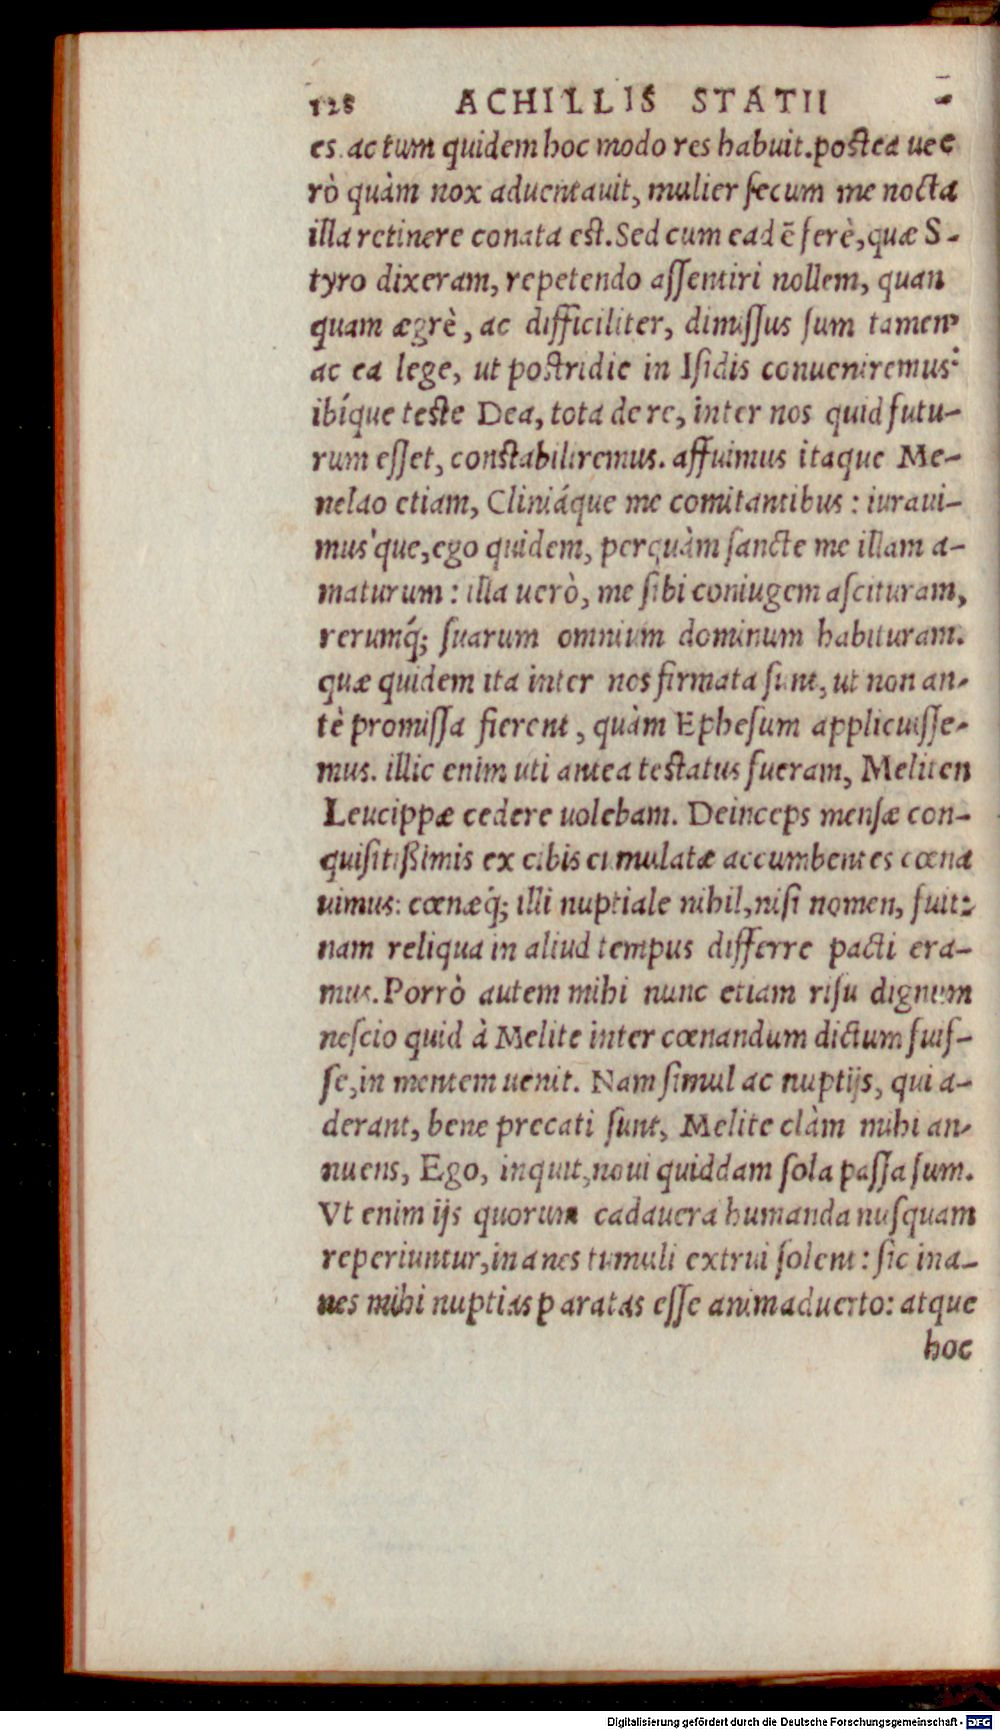 128 ACHILLIS STATII
es. ac tum quidem hoc modo res habuit. postea uee
rò quàm nox aduentauit, mulier secum me nocta
illa retinere conata est. Sed cum eadē ferè, quæ S-
tyro dixeram, repetendo assentiri nollem, quan
quam ægrè, ac difficiliter, dimissus sum tamen,
ac ea lege, ut postridie in Isidis conueniremus:
ibíque teste Dea, tota de re, inter nos quid futu-
rum esset, constabiliremus. affuimus itaque Me-
nelao etiam, Cliniáque me comitantibus: iuraui-
mus'que, ego quidem, perquàm sancte me illam a-
maturum: illa uerò, me sibi coniugem ascituram,
rerumq́; suarum omnium dominum habituram.
quæ quidem ita inter nos firmata sunt, ut non an-
tè promissa fierent, quàm Ephesum applicuisse-
mus. illic enim uti antea testatus fueram, Meliten
Leucippæ cedere uolebam. Deinceps mensæ con-
quisitißimis ex cibis cumulatæ accumbentes cœna
uimus: cœnæq́; illi nuptiale nihil, nisi nomen, fuit:
nam reliqua in aliud tempus differre pacti era-
mus. Porrò autem mihi nunc etiam risu dignum
nescio quid à Melite inter cœnandum dictum fuis-
se, in mentem uenit. Nam simul ac nuptijs, qui a-
derant, bene precati sunt, Melite clàm mihi an-
nuens, Ego, inquit, noui quiddam sola passa sum.
Vt enim ijs quorum cadauera humanda nusquam
reperiuntur, inanes tumuli extrui solent: sic ina-
nes mihi nuptias paratas esse animaduerto: atque
hoc
Digitalisierung gefördert durch die Deutsche Forschungsgemeinschaft - DFG